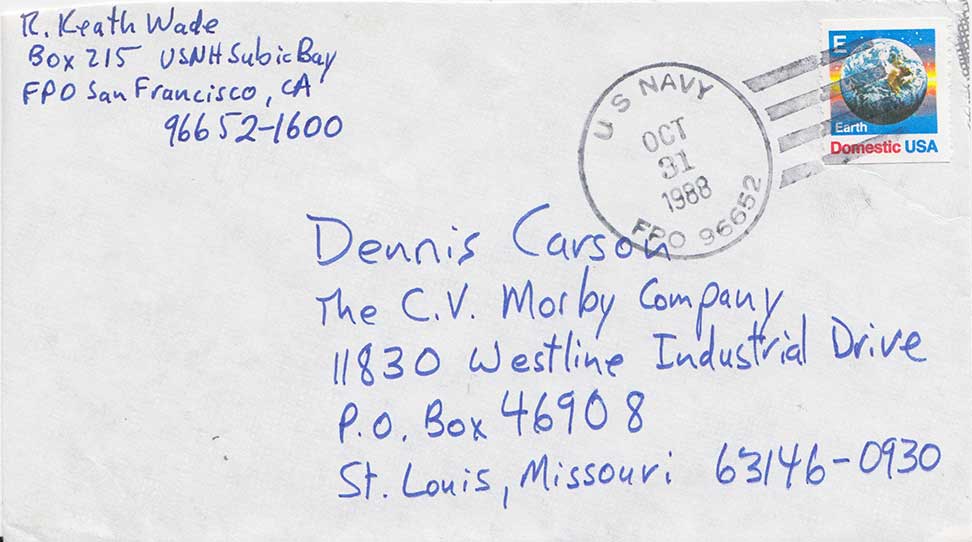 R. Keath Wade
Box 215 USNH Subic Bay
FPO San Francisco, CA
96652-1600
US NAVY
OCT
31
1988
FPO 96652
E
Earth
Domestic USA
Dennis Carson
The C.V. Morby Company
11830 Westline Industrial Drive
P.O. Box 46908
St. Louis, Missouri 63146-0930